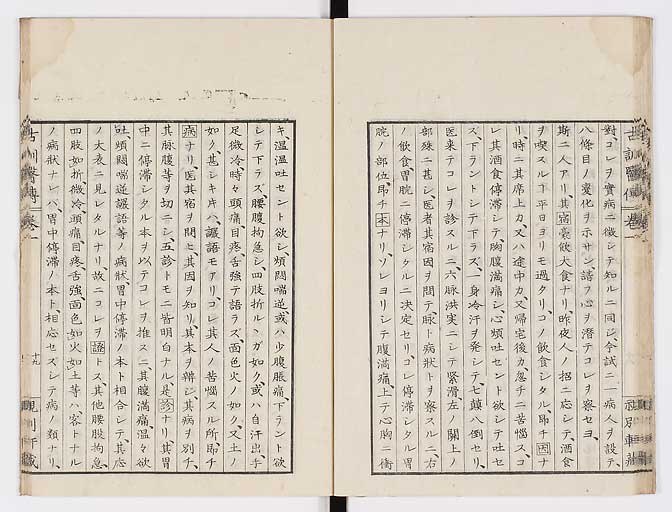 對、コレヲ實病ニ徴シテ知ルニ同シ、今試ニ一病人ヲ設テ、
八條目ノ變化ヲ示サン、請フ心ヲ潛テコレヲ察セヨ、
斯ニ人アリ、其宿豪飲大食ナリ、昨夜人ノ招ニ応シテ、酒食
ヲ喫スルヿ平日ヨリモ過タリ、コノ飲食シタル、即チ因ナ
リ、時ニ其席上カ、又ハ途中カ、又帰宅後カ、忽チニ苦惱スコ
レ其酒食停滞シテ、胸腹満痛シ、心煩吐セント欲シテ、吐セ
ズ、下ラントシテ下ラズ、一身冷汗ヲ発シテ、七顛八倒セリ、
医来テコレヲ診スルニ、六脉洪実ニシテ緊滑、左ノ関上ノ
部殊ニ甚シ、医者其宿因ヲ問テ、脉ト病狀トヲ察スルニ、右
ノ飲食胃脘ニ停滞シタルニ決定セリ、コレ停滞シタル胃
脘ノ部位、即チ本ナリ、ソレヨリシテ腹満痛、上テ心胸ニ衝
キ、温温吐セント欲シ、煩悶喘逆、或ハ少腹脹痛、下ラント欲
シテ下ラズ、腰腹拘急シ、四肢折ルヽガ如ク、或ハ自汗出、手
足微冷、時々頭痛、目疼、舌強テ語ラズ、面色火ノ如ク、又土ノ
如ク、甚シキ片ハ、譫語モアリ、コレ其人ノ苦惱スル所、即チ
病ナリ、医其宿ヲ問ヒ、其因ヲ知リ、其本ヲ辨シ、其病ヲ別チ、
其脉腹等ヲ切ニシ、五診トモニ皆明白ナル、是診ナリ、其胃
中ニ停滞シタル本ヲ以テコレヲ推スニ、其腹満痛温々欲
吐、煩悶喘逆譫語等ノ病狀、胃中停滞ノ本ト相合シテ、其応
ノ大表ニ見レタルナリ、故ニコレヲ證トス、其他腰股拘急、
四肢如折、微冷、頭痛目疼、舌強、面色如火如土等ハ、客トナル
ノ病狀ナレバ、胃中停滞ノ本ト、相応セズシテ病ノ類ナリ、
古訓醫傳 卷一 十九